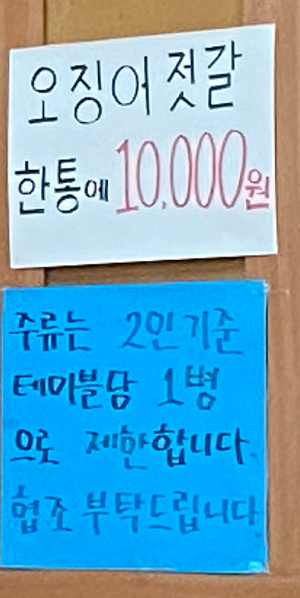 오징어젓갈
한통에 10,000원
주류는 2인기준
테이블당 1병
으로 제한합니다.
협조 부탁드립니다